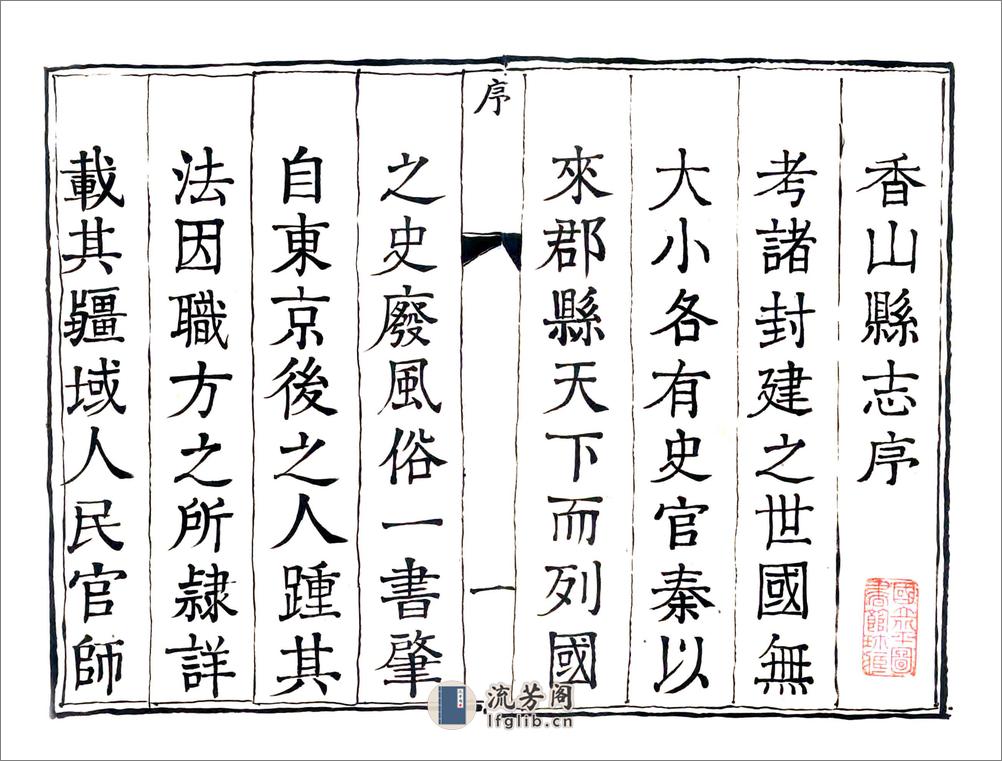 香山縣志序
考諸封建之世國無
大小各有史官秦以
來郡縣天下而列國
序
一
之史廢風俗一書肇
自東京後之人踵其
法因職方之所隸詳
載其疆域人民官師
流芳阁
lfglib.cn